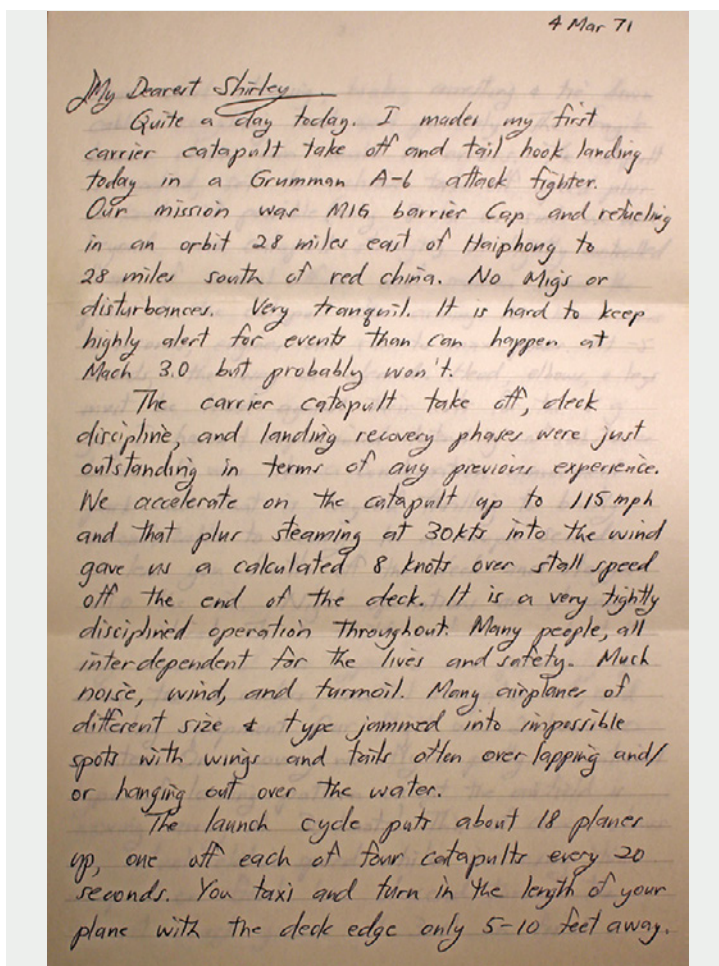 4 Mar 71
My Dearest Shirley
Quite a day today. I made my first
carrier catapult take off and tail hook landing
today in a Grumman A-6 attack fighter.
Our mission was MIG barrier Cap and refueling
in an orbit 28 miles east of Haiphong to
28 miles south of red china. No Migs or
disturbances. Very tranquil. It is hard to keep
highly alert for events than can happen at
Mach 3.0 but probably won't.
The carrier catapult take off, deck
discipline, and landing recovery phases were just
outstanding in terms of any previous experience.
We accelerate on the catapult up to 115 mph
and that plus steaming at 30kts into the wind
gave us a calculated 8 knots over stall speed
off the end of the deck. It is a very tightly
disciplined operation throughout. Many people, all
interdependent for the lives and safety. Much
noise, wind, and turmoil. Many airplanes of
different size & type jammed into impossible
spots with wings and tails often over lapping and/
or hanging out over the water.
The launch cycle puts about 18 planes
up, one off each of four catapults every 20
seconds. You taxi and turn in the length of your
plane with the deck edge only 5-10 feet away.